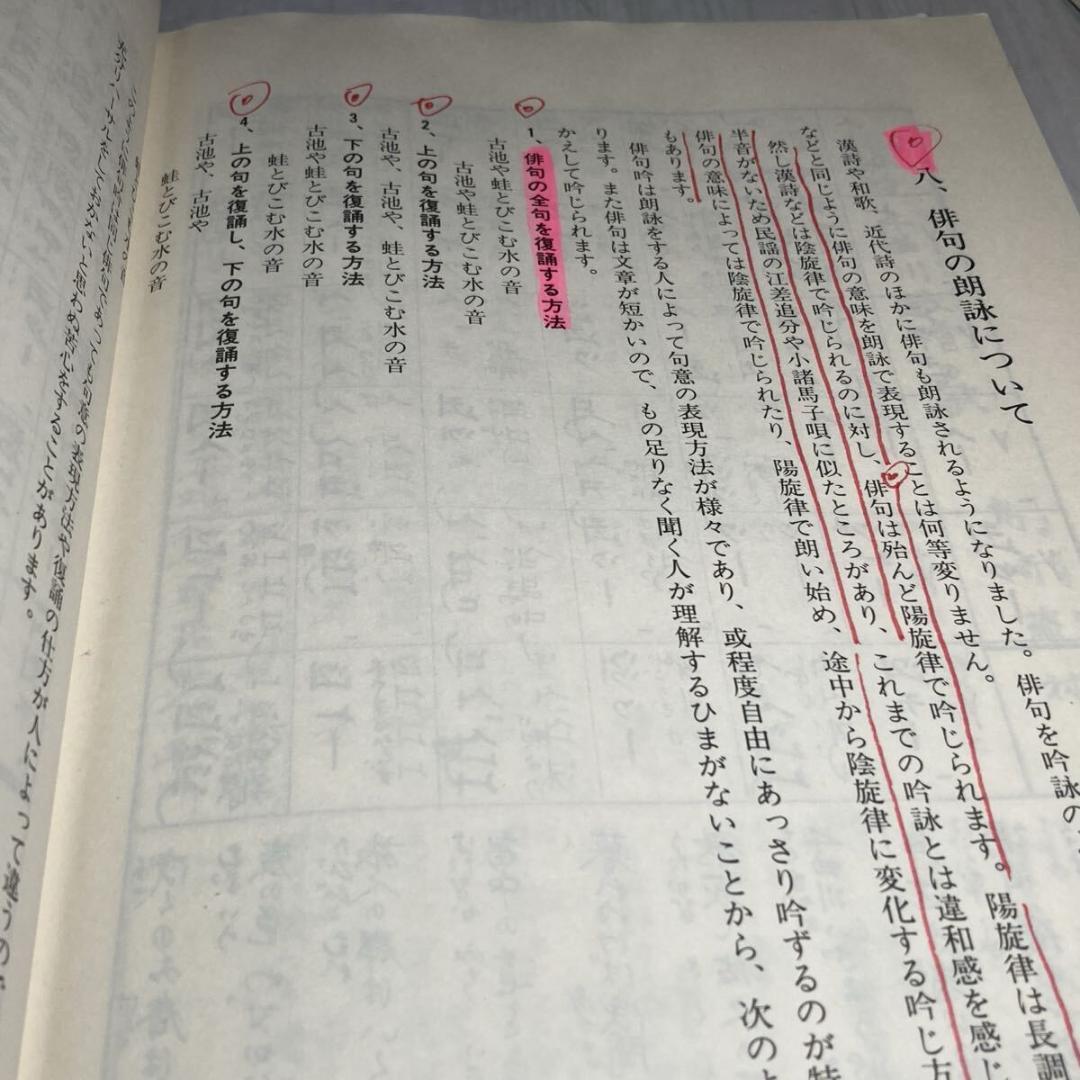 八、俳句の朗詠について
漢詩や和歌、近代詩のほかに俳句も朗詠されるようになりました。俳句を吟詠の
などと同じように俳句の意味を朗詠で表現することは何等変りません。
然し漢詩などは陰旋律で吟じられるのに対し、俳句は殆んど陽旋律で吟じられます。陽旋律は長調
半音がないため民謡の江差追分や小諸馬子唄に似たところがあり、これまでの吟詠とは違和感を感じ
俳句の意味によっては陰旋律で吟じられたり、陽旋律で朗い始め、途中から陰旋律に変化する吟じ方
もあります。
俳句吟は朗詠をする人によって句意の表現方法が様々であり、或程度自由にあっさり吟ずるのが特
ります。また俳句は文章が短かいので、もの足りなく聞く人が理解するひまがないことから、次のよ
かえして吟じられます。
1、俳句の全句を復誦する方法
古池や蛙とびこむ水の音
古池や蛙とびこむ水の音
2、上の句を復誦する方法
古池や、古池や、蛙とびこむ水の音
3、下の句を復誦する方法
古池や蛙とびこむ水の音
蛙とびこむ水の音
4、上の句を復誦し、下の句を復誦する方法
古池や、古池や
蛙とびこむ水の音
蛙とびこむ水の音
このように俳句吟は同じ俳句であっても句意の表現方法や復誦の仕方が人によって違うので
をしておかないと思わぬ苦心をすることがあります。